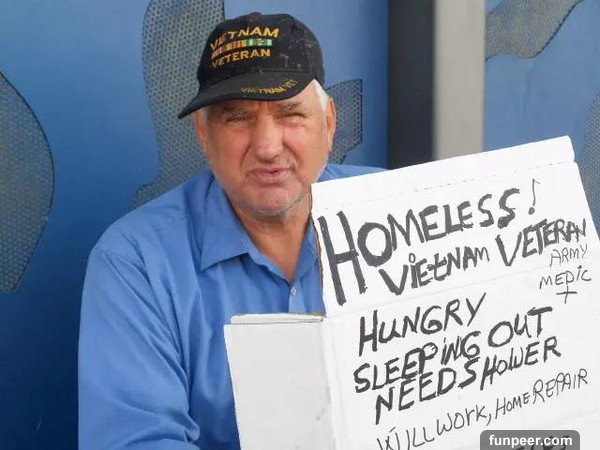 VIETNAM
VETERAN
VIETNAM VET
HOMELESS!
VIETNAM VETERAN
ARMY
MEDIC
+
HUNGRY
SLEEPING OUT
NEED SHOWER
WILL WORK, HOME REPAIR
funpeer.com